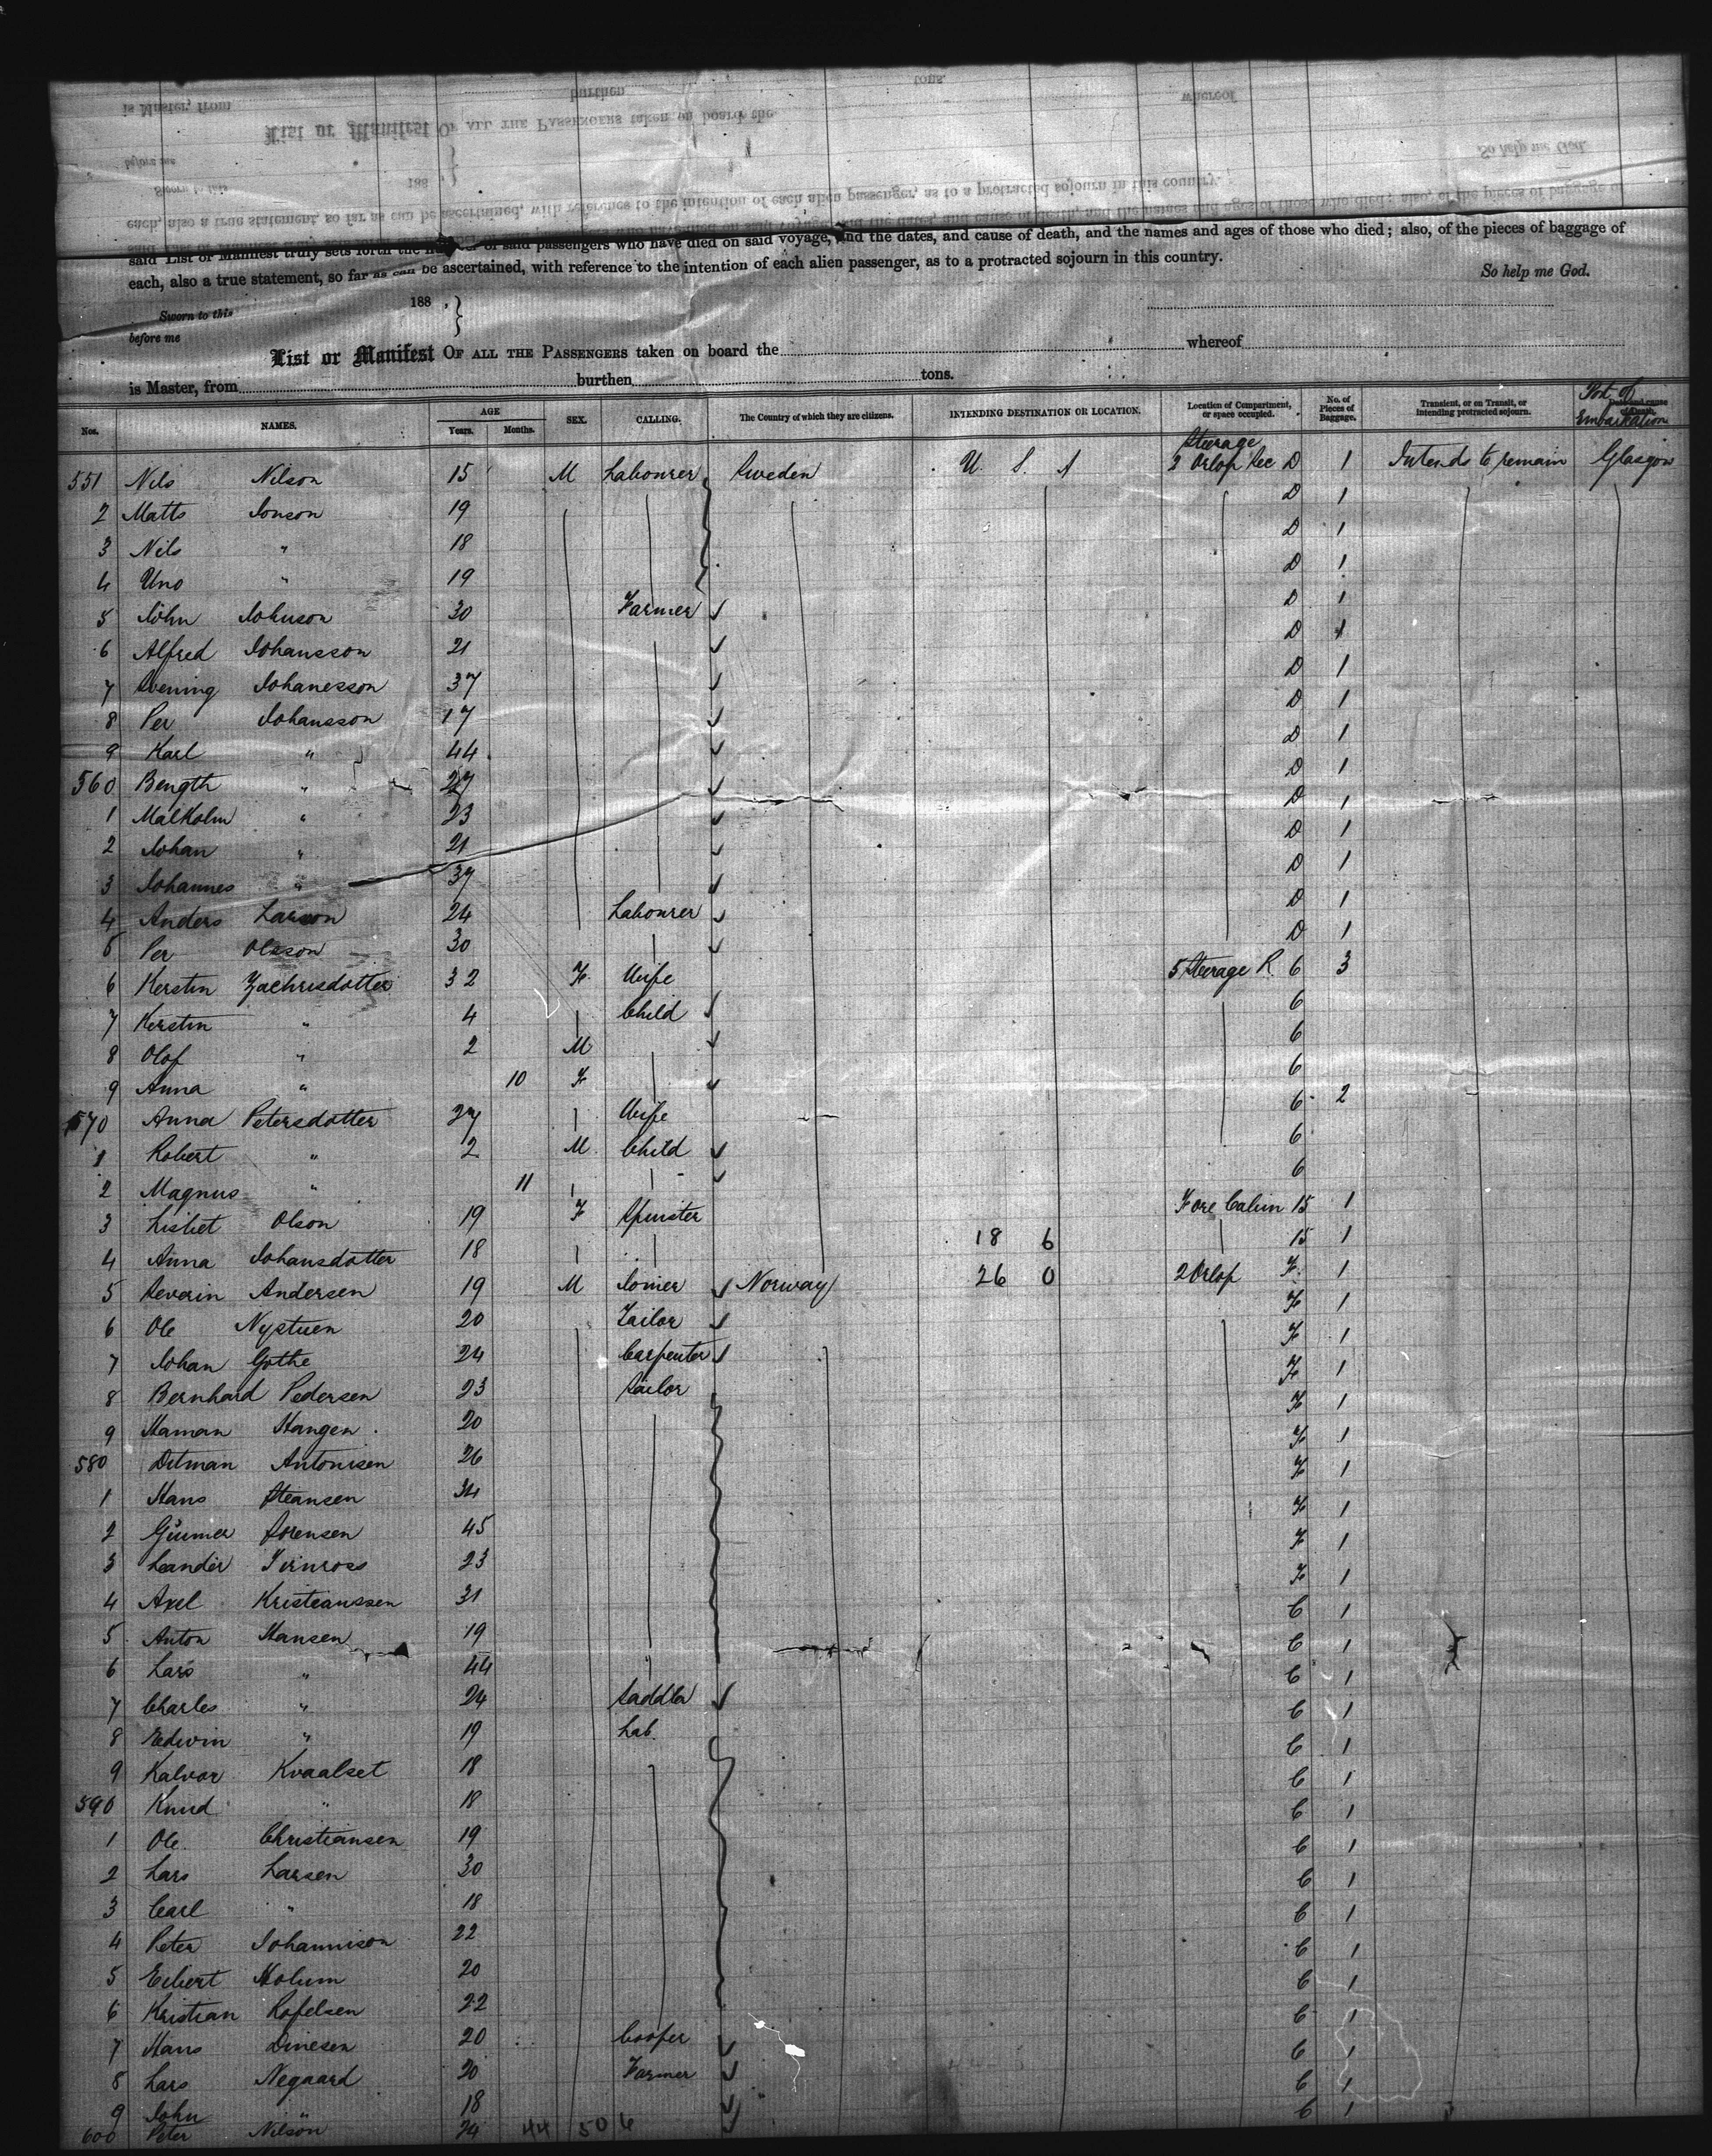 said List or Manifest truly sets forth the number of said passengers who have died on said voyage, and the dates, and cause of death, and the names and ages of those who died; also, of the pieces of baggage of
each, also a true statement, so far as can be ascertained, with reference to the intention of each alien passenger, as to a protracted sojourn in this country.
So help me God.
Sworn to this 188 , }
before me
List or Manifest OF ALL THE PASSENGERS taken on board the whereof
is Master, from burthen tons.
Nos. NAMES. AGE Years. Months. SEX. CALLING. The Country of which they are citizens. INTENDING DESTINATION OR LOCATION. Location of Compartment, or space occupied. No. of Pieces of Baggage. Transient, or on Transit, or intending protracted sojourn. Port of Embarkation
551 Nils Nilson 15 M Labourer Sweden U. S. A Steerage 2 Orlop Sec D 1 Intends to remain Glasgow
2 Matts Jonson 19 D 1
3 Nils " 18 D 1
4 Uno " 19 D 1
5 John Johnson 30 Farmer D 1
6 Alfred Johansson 21 D 1
7 Svening Johanesson 37 D 1
8 Per Johansson 17 D 1
9 Karl " 44 D 1
560 Bength " 27 D 1
1 Malkolm " 23 D 1
2 Johan " 21 D 1
3 Johannes " 37 D 1
4 Anders Larson 24 Labourer D 1
5 Per Olsson 30 D 1
6 Kerstin Zachrisdotter 32 F Wife 5 Steerage R 6 3
7 Kerstin " 4 Child 6
8 Olof " 2 M 6
9 Anna " 10 F 6
570 Anna Petersdotter 27 Wife 6 2
1 Robert " 2 M Child 6
2 Magnus " 11 6
3 Lisbet Olson 19 F Spinster Fore Cabin 15 1
4 Anna Johansdotter 18 18 6 15 1
5 Severin Andersen 19 M Joiner Norway 26 0 2 Orlop F 1
6 Ole Nystuen 20 Tailor F 1
7 Johan Gothe 24 Carpenter F 1
8 Bernhard Pedersen 23 Sailor F 1
9 Haman Hangen 20 F 1
580 Ditman Antonisen 26 F 1
1 Hans Steansen 34 F 1
2 Gunmer Sorensen 45 F 1
3 Leander 23 F 1
4 Axel Kristianssen 31 F 1
5 Anton Hansen 19 C 1
6 Lars " 44 C 1
7 Charles " 24 Saddler C 1
8 Edwin " 19 Lab. C 1
9 Kalvor Kvaalset 18 C 1
590 Knud " 18 C 1
1 Ole Christiansen 19 C 1
2 Lars Larsen 30 C 1
3 Carl " 18 C 1
4 Peter Johannison 22 C 1
5 Holum 20 C 1
6 Kristian Rofelsen 22 C 1
7 Hans Dinesen 20 Cooper C 1
8 Lars Negaard 20 Farmer C 1
9 John " 18 C 1
600 Peter Nilson 24 C 1
44 50 6